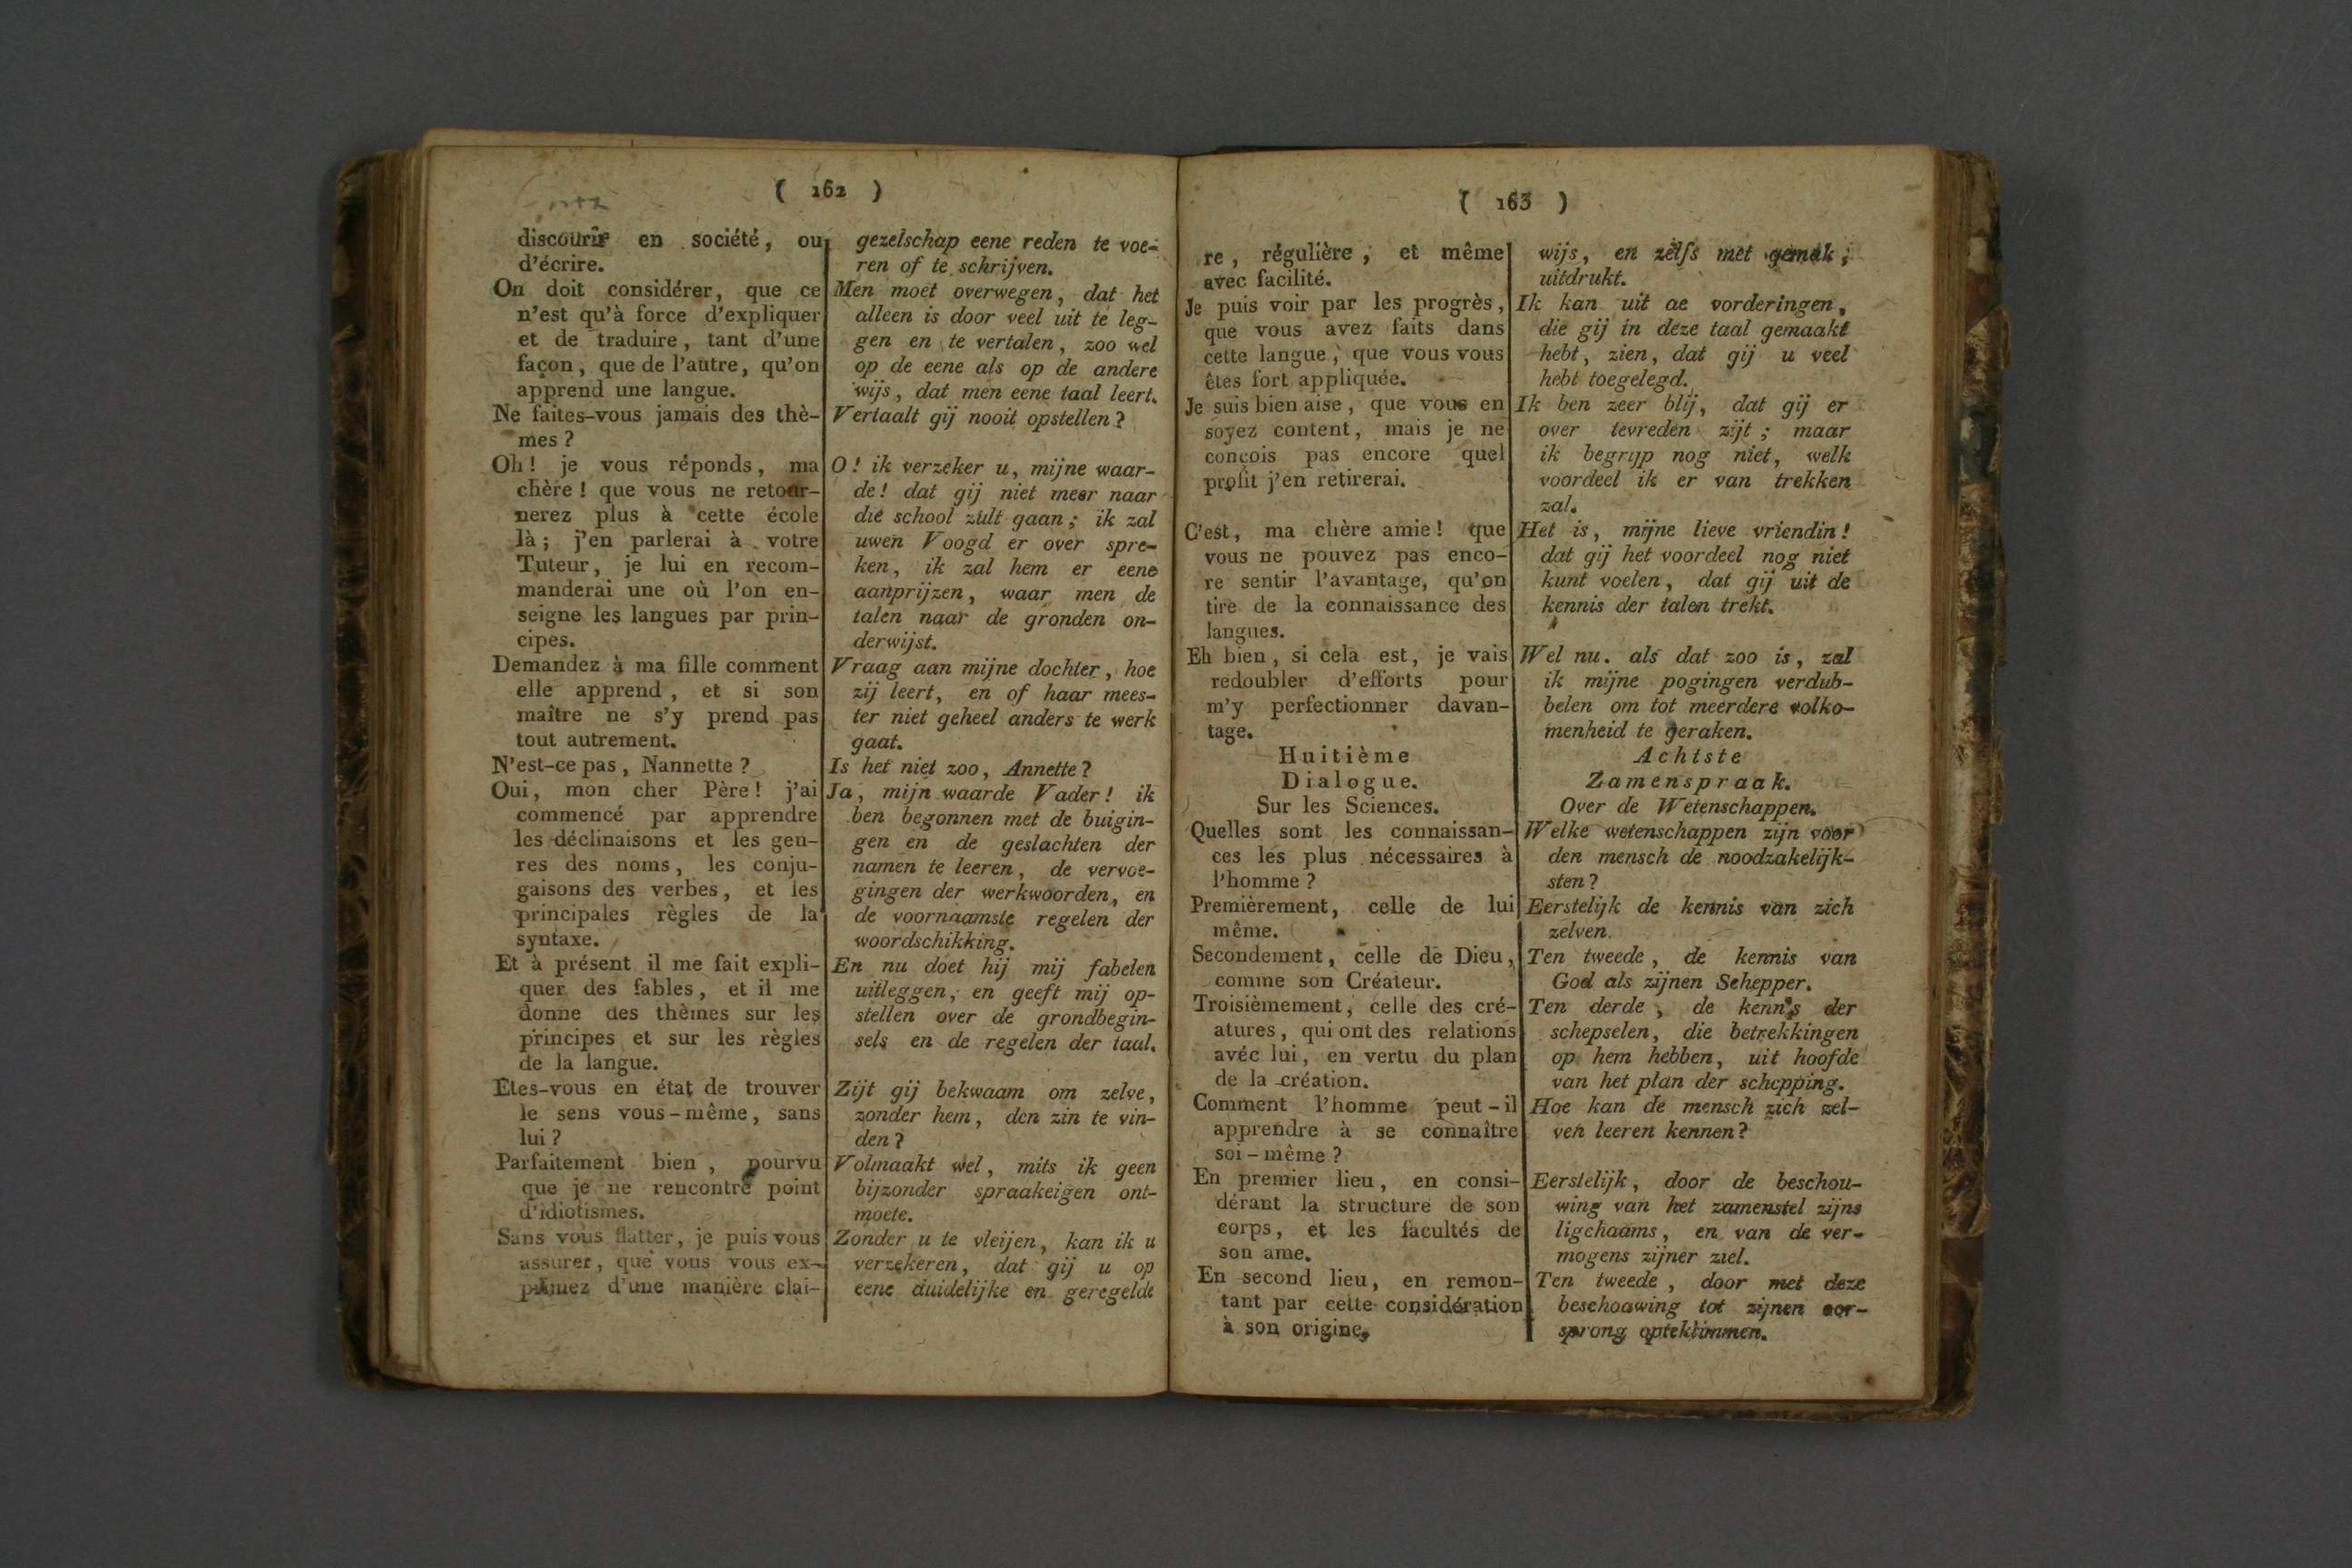 ( 162 )
discourir en société, ou
d'écrire.
On doit considérer, que ce
n'est qu'à force d'expliquer
et de traduire, tant d'une
façon, que de l'autre, qu'on
apprend une langue.
Ne faites-vous jamais des thè-
mes ?
Oh! je vous réponds, ma
chère ! que vous ne retour-
nerez plus à cette école
là; j'en parlerai à votre
Tuteur, je lui en recom-
manderai une où l'on en-
seigne les langues par prin-
cipes.
Demandez à ma fille comment
elle apprend, et si son
maître ne s'y prend pas
tout autrement.
N'est-ce pas, Nannette ?
Oui, mon cher Père! j'ai
commencé par apprendre
les déclinaisons et les gen-
res des noms, les conju-
gaisons des verbes, et les
principales règles de la
syntaxe.
Et à présent il me fait expli-
quer des fables, et il me
donne des thèmes sur les
principes et sur les règles
de la langue.
Etes-vous en état de trouver
le sens vous-même, sans
lui ?
Parfaitement bien, pourvu
que je ne rencontre point
d'idiotismes.
Sans vous flatter, je puis vous
assurer, que vous vous ex-
primez d'une manière clai-
gezelschap eene reden te voe-
ren of te schrijven.
Men moet overwegen, dat het
alleen is door veel uit te leg-
gen en te vertalen, zoo wel
op de eene als op de andere
wijs, dat men eene taal leert.
Vertaalt gij nooit opstellen ?
O! ik verzeker u, mijne waar-
de! dat gij niet meer naar
die school zult gaan; ik zal
uwen Voogd er over spre-
ken, ik zal hem er eene
aanprijzen, waar men de
talen naar de gronden on-
derwijst.
Vraag aan mijne dochter, hoe
zij leert, en of haar mees-
ter niet geheel anders te werk
gaat.
Is het niet zoo, Annette ?
Ja, mijn waarde Vader! ik
ben begonnen met de buigin-
gen en de geslachten der
namen te leeren, de vervoe-
gingen der werkwoorden, en
de voornaamste regelen der
woordschikking.
En nu doet hij mij fabelen
uitleggen, en geeft mij op-
stellen over de grondbegin-
sels en de regelen der taal.
Zijt gij bekwaam om zelve,
zonder hem, den zin te vin-
den ?
Volmaakt wel, mits ik geen
bijzonder spraakeigen ont-
moete.
Zonder u te vleijen, kan ik u
verzekeren, dat gij u op
eene duidelijke en geregelde
( 163 )
re, régulière, et même
avec facilité.
Je puis voir par les progrès,
que vous avez faits dans
cette langue, que vous vous
êtes fort appliquée.
Je suis bien aise, que vous en
soyez content, mais je ne
conçois pas encore quel
profit j'en retirerai.
C'est, ma chère amie! que
vous ne pouvez pas enco-
re sentir l'avantage, qu'on
tire de la connaissance des
langues.
Eh bien, si cela est, je vais
redoubler d'efforts pour
m'y perfectionner davan-
tage.
Huitième
Dialogue.
Sur les Sciences.
Quelles sont les connaissan-
ces les plus nécessaires à
l'homme ?
Premièrement, celle de lui
même.
Secondement, celle de Dieu,
comme son Créateur.
Troisièmement, celle des cré-
atures, qui ont des relations
avéc lui, en vertu du plan
de la création.
Comment l'homme peut-il
apprendre à se connaître
soi-même ?
En premier lieu, en consi-
dérant la structure de son
corps, et les facultés de
son ame.
En second lieu, en remon-
tant par cette considération
à son origine,
wijs, en zelfs met gemak;
uitdrukt.
Ik kan uit de vorderingen,
die gij in deze taal gemaakt
hebt, zien, dat gij u veel
hebt toegelegd.
Ik ben zeer blij, dat gij er
over tevreden zijt; maar
ik begrijp nog niet, welk
voordeel ik er van trekken
zal.
Het is, mijne lieve vriendin!
dat gij het voordeel nog niet
kunt voelen, dat gij uit de
kennis der talen trekt.
Wel nu. als dat zoo is, zal
ik mijne pogingen verdub-
belen om tot meerdere volko-
menheid te geraken.
Achtste
Zamenspraak.
Over de Wetenschappen.
Welke wetenschappen zijn voor
den mensch de noodzakelijk-
sten ?
Eerstelijk de kennis van zich
zelven.
Ten tweede, de kennis van
God als zijnen Schepper.
Ten derde, de kennis der
schepselen, die betrekkingen
op hem hebben, uit hoofde
van het plan der schepping.
Hoe kan de mensch zich zel-
ven leeren kennen?
Eerstelijk, door de beschou-
wing van het zamenstel zijns
ligchaams, en van de ver-
mogens zijner ziel.
Ten tweede, door met deze
beschouwing tot zijnen oor-
sprong opteklimmen.